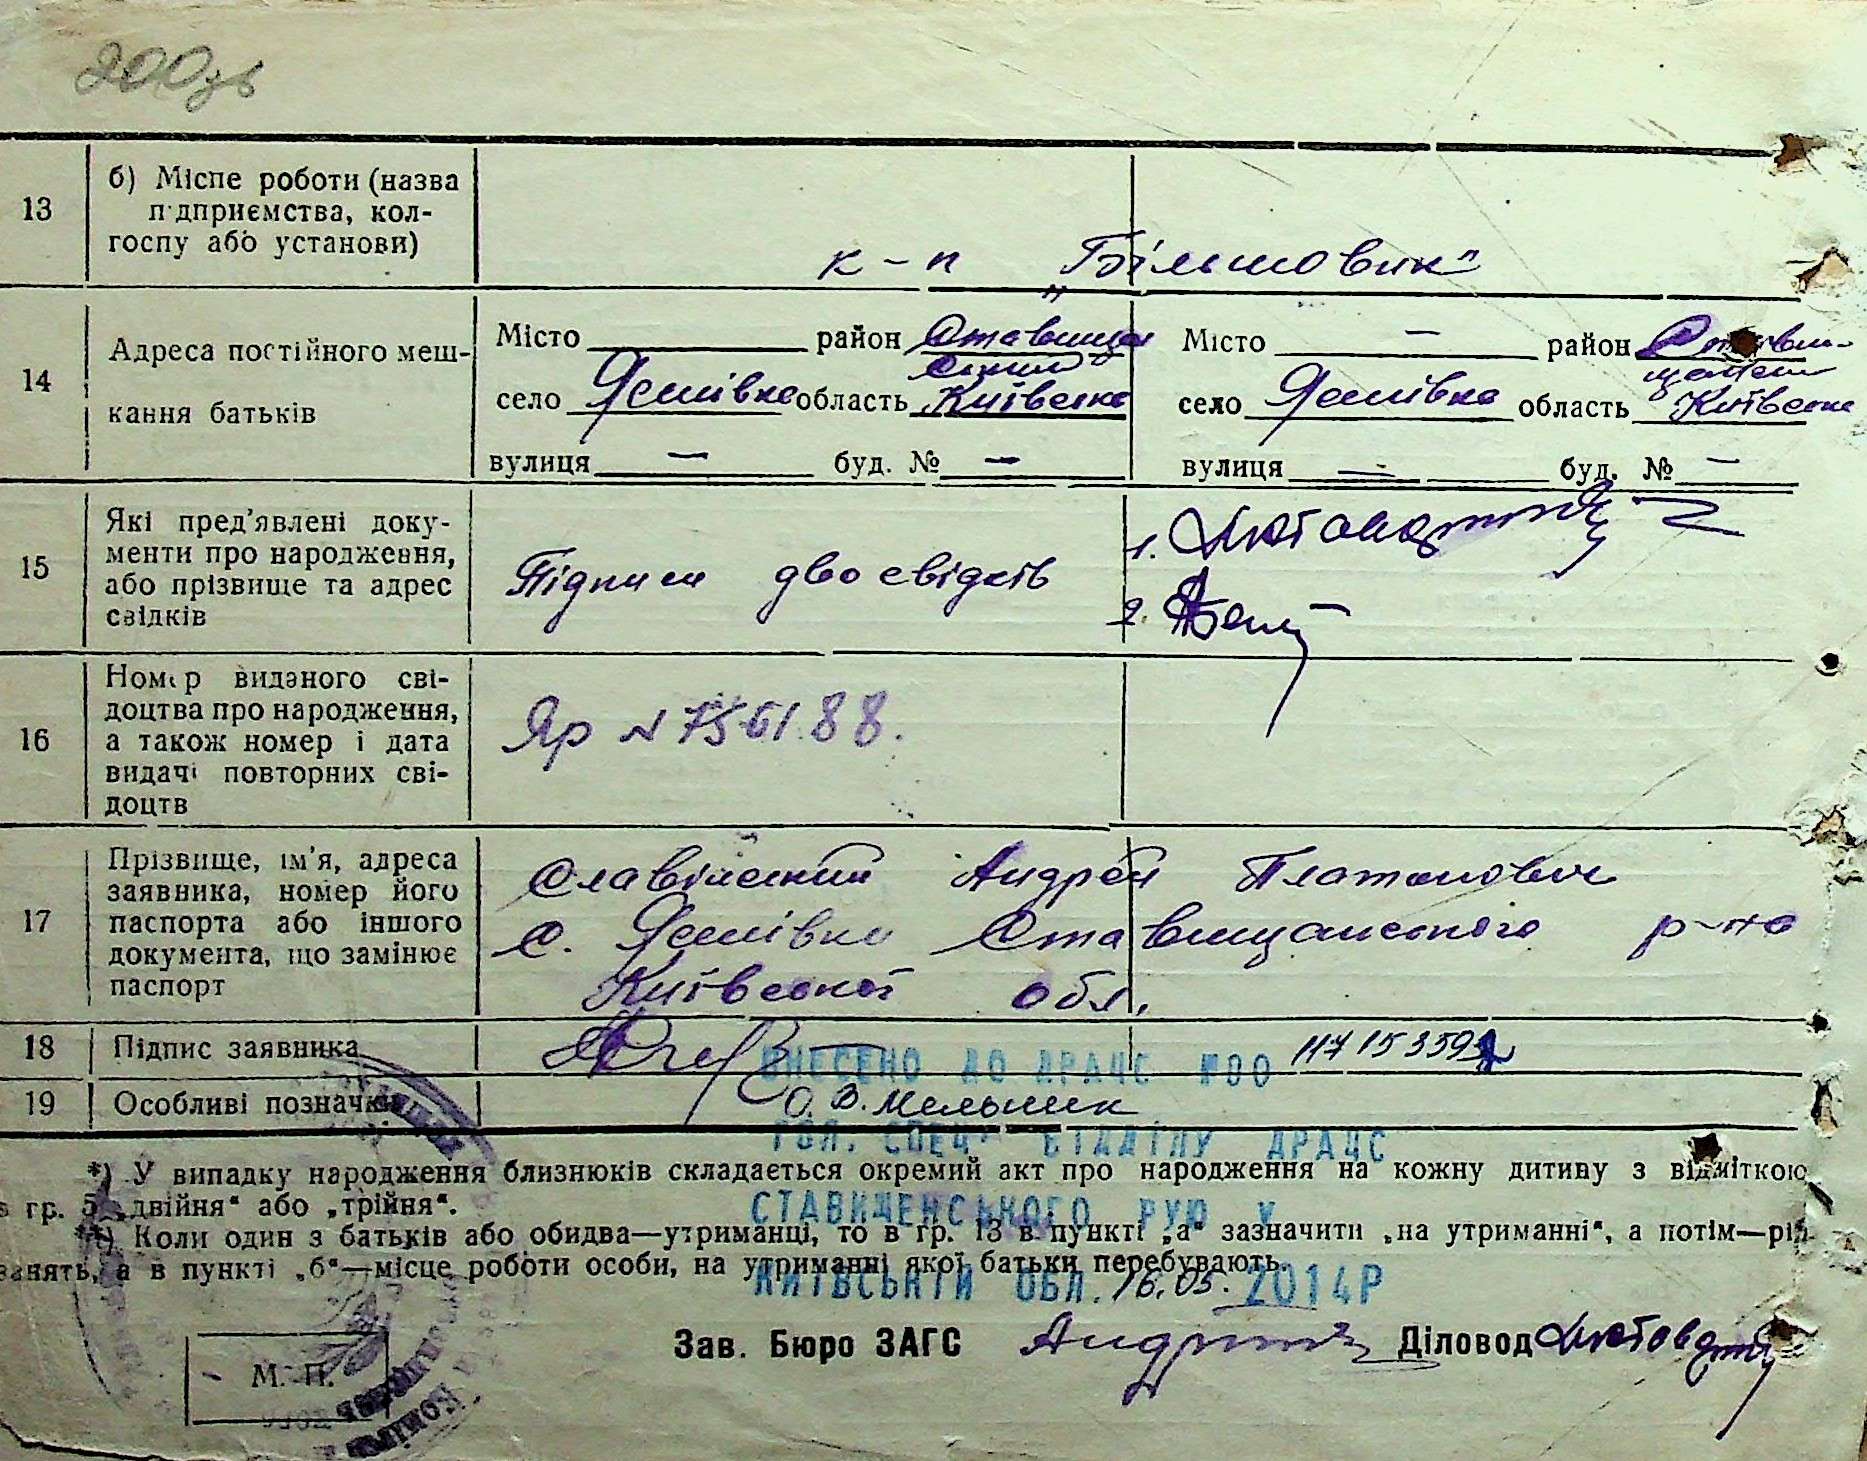 200зв
13 б) Місце роботи (назва
підприємства, кол-
госпу або установи)
к-п „Більшовик"
14 Адреса постійного меш-
кання батьків
Місто район Ставищан
ський
село Яснівка область Київська
вулиця — буд. № —
Місто — район Стави-
щански
село Яснівка область Київська
вулиця — буд. № —
15 Які пред'явлені доку-
менти про народження,
або прізвище та адрес
свідків
Підписи двох свідків
1.
2.
16 Номер виданого сві-
доцтва про народження,
а також номер і дата
видачі повторних сві-
доцтв
Яр № 756188.
17 Прізвище, ім'я, адреса
заявника, номер його
паспорта або іншого
документа, що замінює
паспорт
Славінский Андрей Платонович
с. Яснівка Ставищанського р-на
Київської обл.
18 Підпис заявника
ВНЕСЕНО ДО ДРАЦС №00 117153592
19 Особливі позначки
О. В. Мельник
ГОЛ. СПЕЦ. ВІДДІЛУ ДРАЦС
*) У випадку народження близнюків складається окремий акт про народження на кожну дитину з відміткою
в гр. 5 „двійня“ або „трійня“.
СТАВИЩЕНСЬКОГО РУЮ У
**) Коли один з батьків або обидва—утриманці, то в гр. 13 в пункті „а“ зазначити „на утриманні“, а потім—рід
занять, а в пункті „б“—місце роботи особи, на утриманні якої батьки перебувають.
КИЇВСЬКІЙ ОБЛ. 16.05. 2014Р
Зав. Бюро ЗАГС Діловод
М. П.